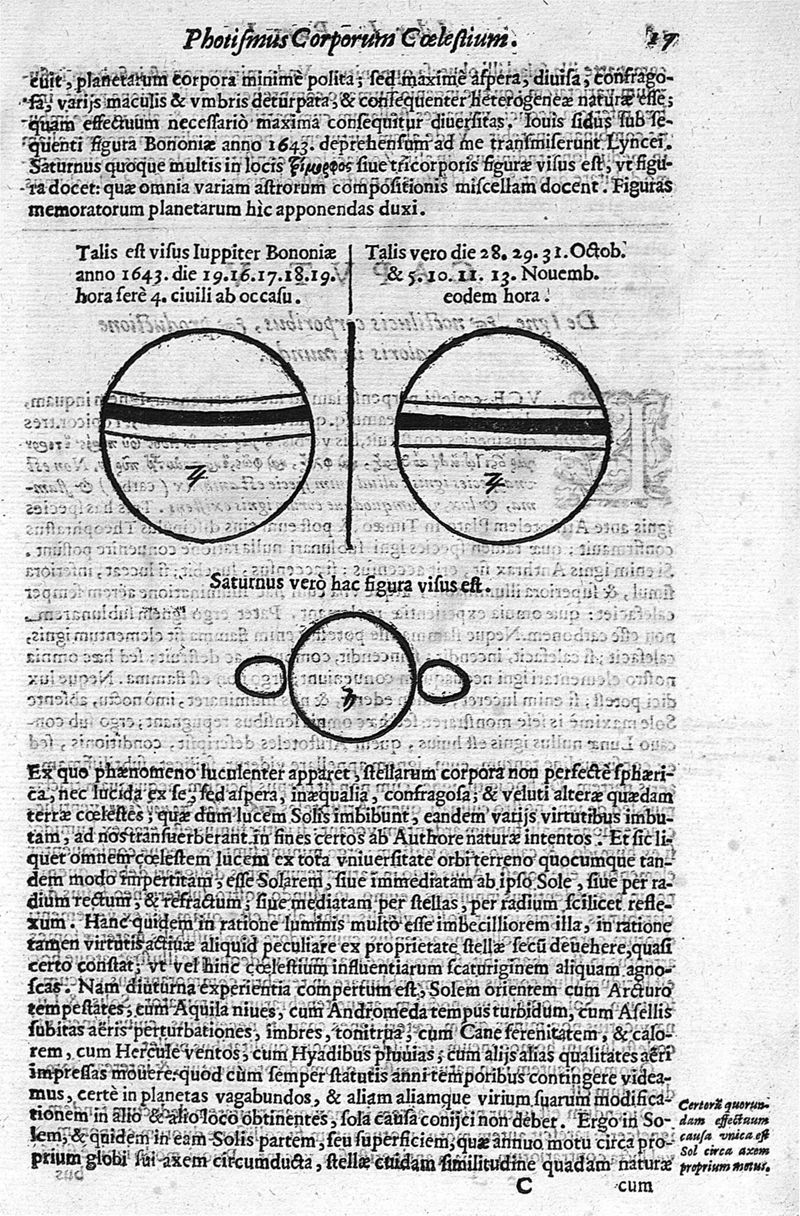 Photiſmus Corporum Cœleſtium. 17
cuit, planetarum corpora minimè polita; ſed maximè aſpera, diuiſa, confrago-
ſa, varijs maculis & vmbris deturpata, & conſequenter heterogeneæ naturæ eſſe;
quam effectuum neceſſariò maxima conſequitur diuerſitas. Iouis ſidus ſub ſe-
quenti figura Bononiæ anno 1643. deprehenſum ad me tranſmiſerunt Lyncei.
Saturnus quoque multis in locis ſiue tricorporis figuræ viſus eſt, vt figu-
ra docet: quæ omnia variam aſtrorum compoſitionis miſcellam docent. Figuras
memoratorum planetarum hìc apponendas duxi.
Talis eſt viſus Iuppiter Bononiæ
anno 1643. die 19.16.17.18.19.
hora ferè 4. ciuili ab occaſu.
Talis vero die 28. 29. 31. Octob.
& 5. 10. 11. 13. Nouemb.
eodem hora.
♃
♃
Saturnus verò hac figura viſus eſt.
♄
Ex quo phænomeno luculenter apparet, ſtellarum corpora non perfectè ſphæri-
ca, nec lucida ex ſe, ſed aſpera, inæqualia, confragoſa; & veluti alteræ quædam
terræ cœleſtes; quæ dum lucem Solis imbibunt, eandem varijs virtutibus imbu-
tam, ad nos tranſuerberant in fines certos ab Authore naturæ intentos. Et ſic li-
quet omnem cœleſtem lucem ex tota vniuerſitate orbi terreno quocumque tan-
dem modo impertitam, eſſe Solarem, ſiue immediatam ab ipſo Sole, ſiue per ra-
dium rectum, & refractum; ſiue mediatam per ſtellas, per radium ſcilicet refle-
xum. Hanc quidem in ratione luminis multò eſſe imbecilliorem illa, in ratione
tamen virtutis actiuæ aliquid peculiare ex proprietate ſtellæ ſecũ deuehere, quaſi
certo conſtat; vt vel hinc cœleſtium influentiarum ſcaturiginem aliquam agno-
ſcas. Nam diuturna experientia compertum eſt, Solem orientem cum Arcturo
tempeſtates, cum Aquila niues, cum Andromeda tempus turbidum, cum Aſellis
ſubitas aëris perturbationes, imbres, tonitrua, cum Cane ſerenitatem, & calo-
rem, cum Hercule ventos, cum Hyadibus pluuias, cum alijs alias qualitates aëri
impreſſas mouere: quod cùm ſemper ſtatutis anni temporibus contingere videa-
mus, certè in planetas vagabundos, & aliam aliamque virium ſuarum modifica-
tionem in alio & alio loco obtinentes, ſola cauſa conijci non debet. Ergo in So-
lem, & quidem in eam Solis partem, ſeu ſuperficiem, quæ annuo motu circa pro-
prium globi ſui axem circumducta, ſtellæ cuidam ſimilitudine quadam naturæ
Certorũ quorun-
dam effectuum
cauſa vnica eſt
Sol circa axem
proprium motus.
C cum